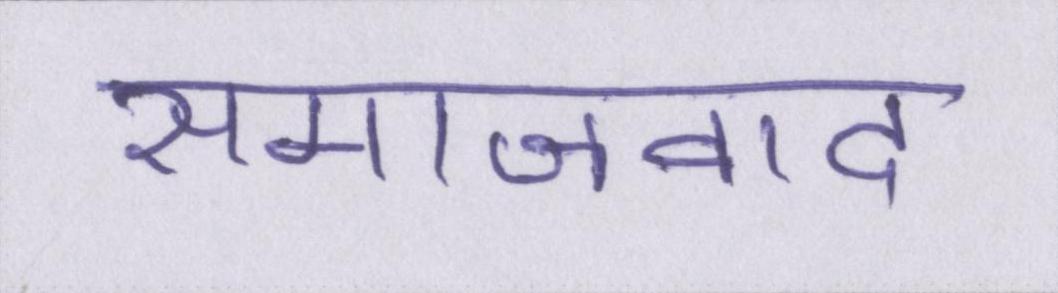 समाजवाद